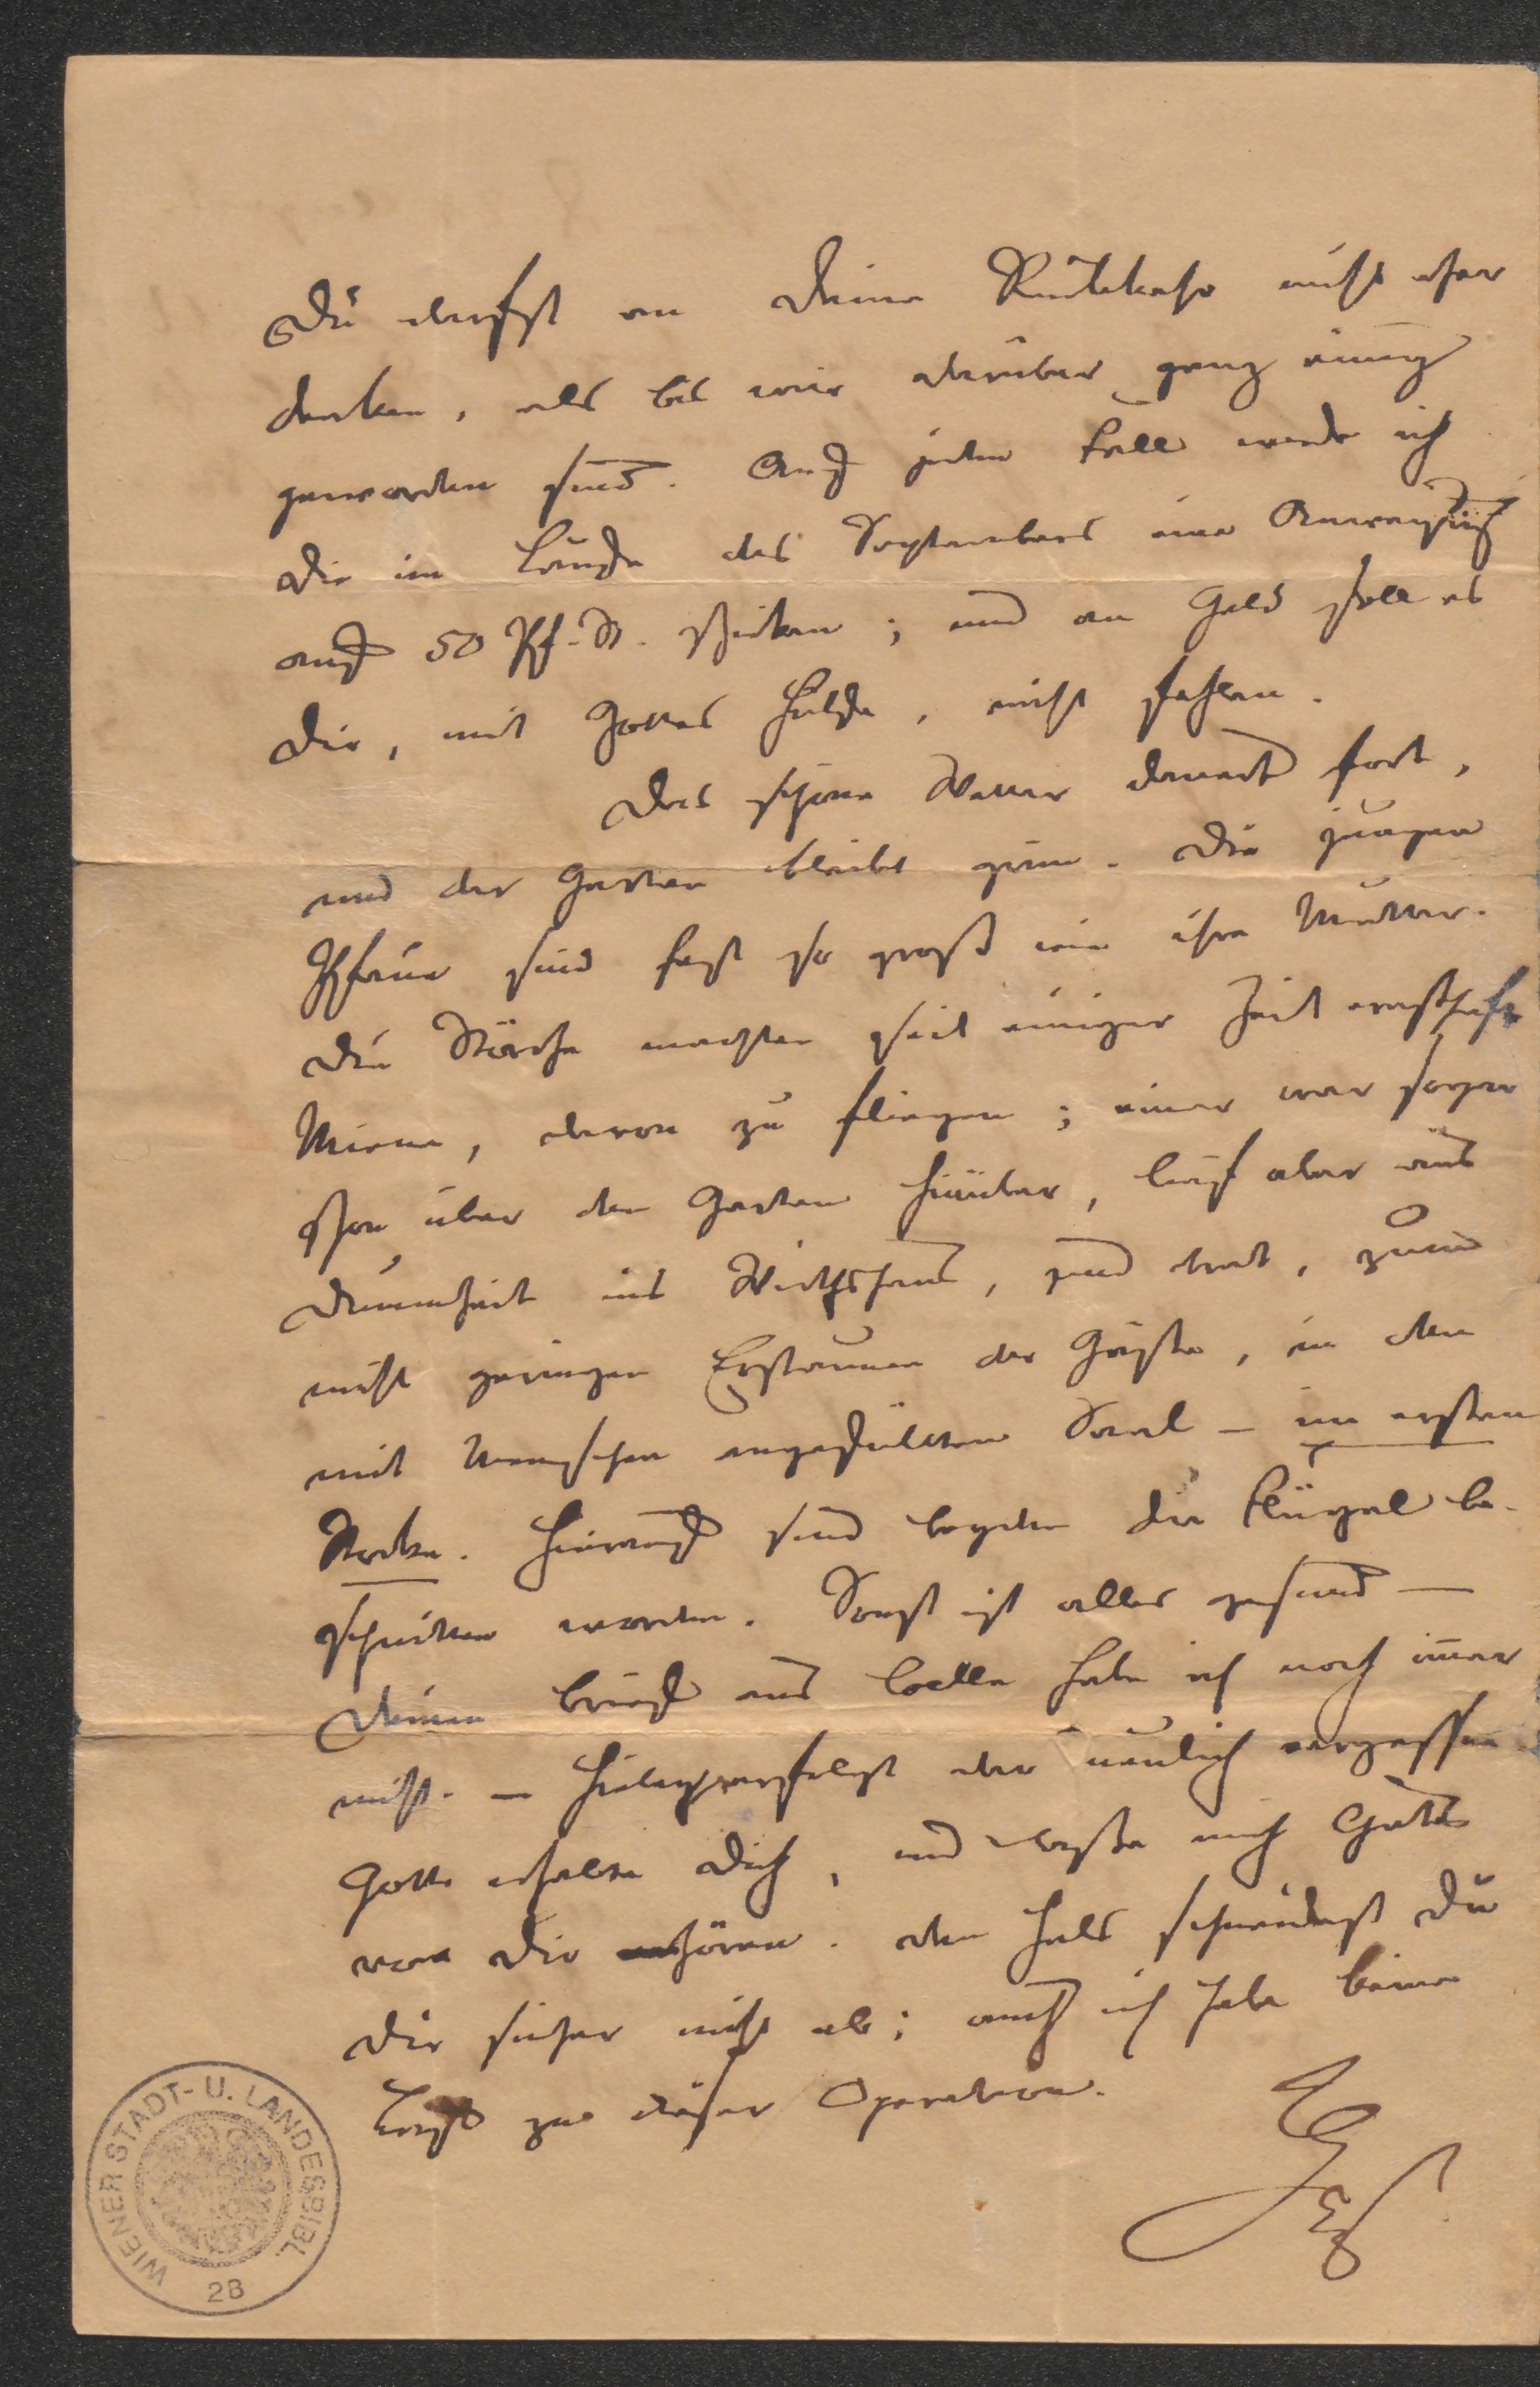 Du darfst an Deine Rückkehr nicht eher
denken, als bis wir darüber ganz einig
geworden sind. Auf jeden Fall werde ich
Dir im Laufe des Septembers eine Anweisung
auf 50 Pf. St. schicken; und an Geld soll es
Dir, mit Gottes Hülfe, nicht fehlen.
Das schöne Wetter dauert fort,
und der Garten bleibt grün. Die jungen
Pfaue sind fast so groß wie ihre Mutter.
Die Störche machten seit einiger Zeit ernsthaft
Miene, davon zu fliegen; einer war sogar
schon über den Garten hinüber, lief aber aus
Dummheit ins Wirthshaus, und trat, zum
nicht geringen Erstaunen der Gäste, in den
mit Menschen angefüllten Saal – im ersten
Stocke. Hierauf sind beyden die Flügel be-
schnitten worden. Sonst ist alles gesund —
Deinen Brief aus Celle habe ich noch immer
nicht. – Hiebey erfolgt der neulich vergessene
Gott erhalte Dich, und lasse mich Gutes
von Dir hören. Den Hals schneidest Du
Dir sicher nicht ab; auch ich habe keine
Lust zu dieser Operation.
WIENER STADT- U. LANDESBIBL.
28